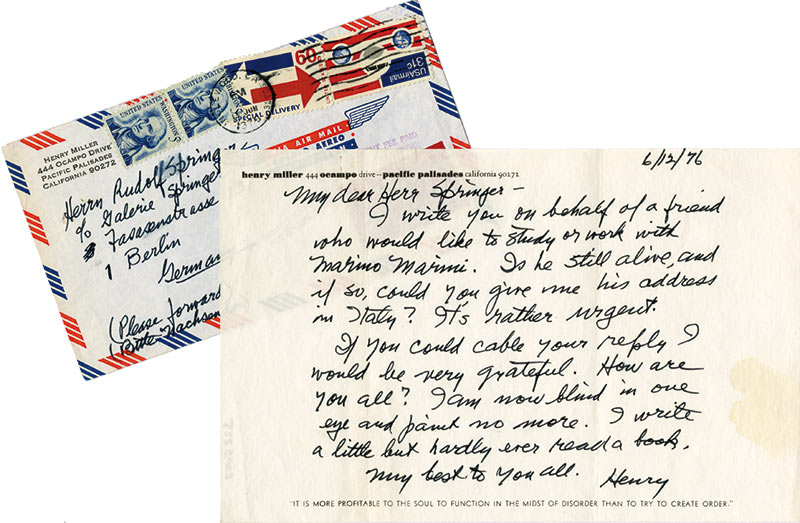 UNITED STATES
UNITED STATES
WASHINGTON 5c
60c
SPECIAL DELIVERY
USAirmail
31c
AIR MAIL
FEE PAID
HENRY MILLER
444 OCAMPO DRIVE
PACIFIC PALISADES
CALIFORNIA 90272
Herrn Rudolf Springer
c/o Galerie Springer
Fasanenstrasse
1 Berlin
German
(Please forward
(Bitte Nachsen
henry miller 444 ocampo drive – pacific palisades california 90272
6/12/76
My dear Herr Springer –
I write you on behalf of a friend
who would like to study or work with
Marino Marini. Is he still alive, and
if so, could you give me his address
in Italy? It's rather urgent.
If you could cable your reply I
would be very grateful. How are
you all? I am now blind in one
eye and paint no more. I write
a little but hardly ever read a book.
My best to you all. Henry
"IT IS MORE PROFITABLE TO THE SOUL TO FUNCTION IN THE MIDST OF DISORDER THAN TO TRY TO CREATE ORDER."